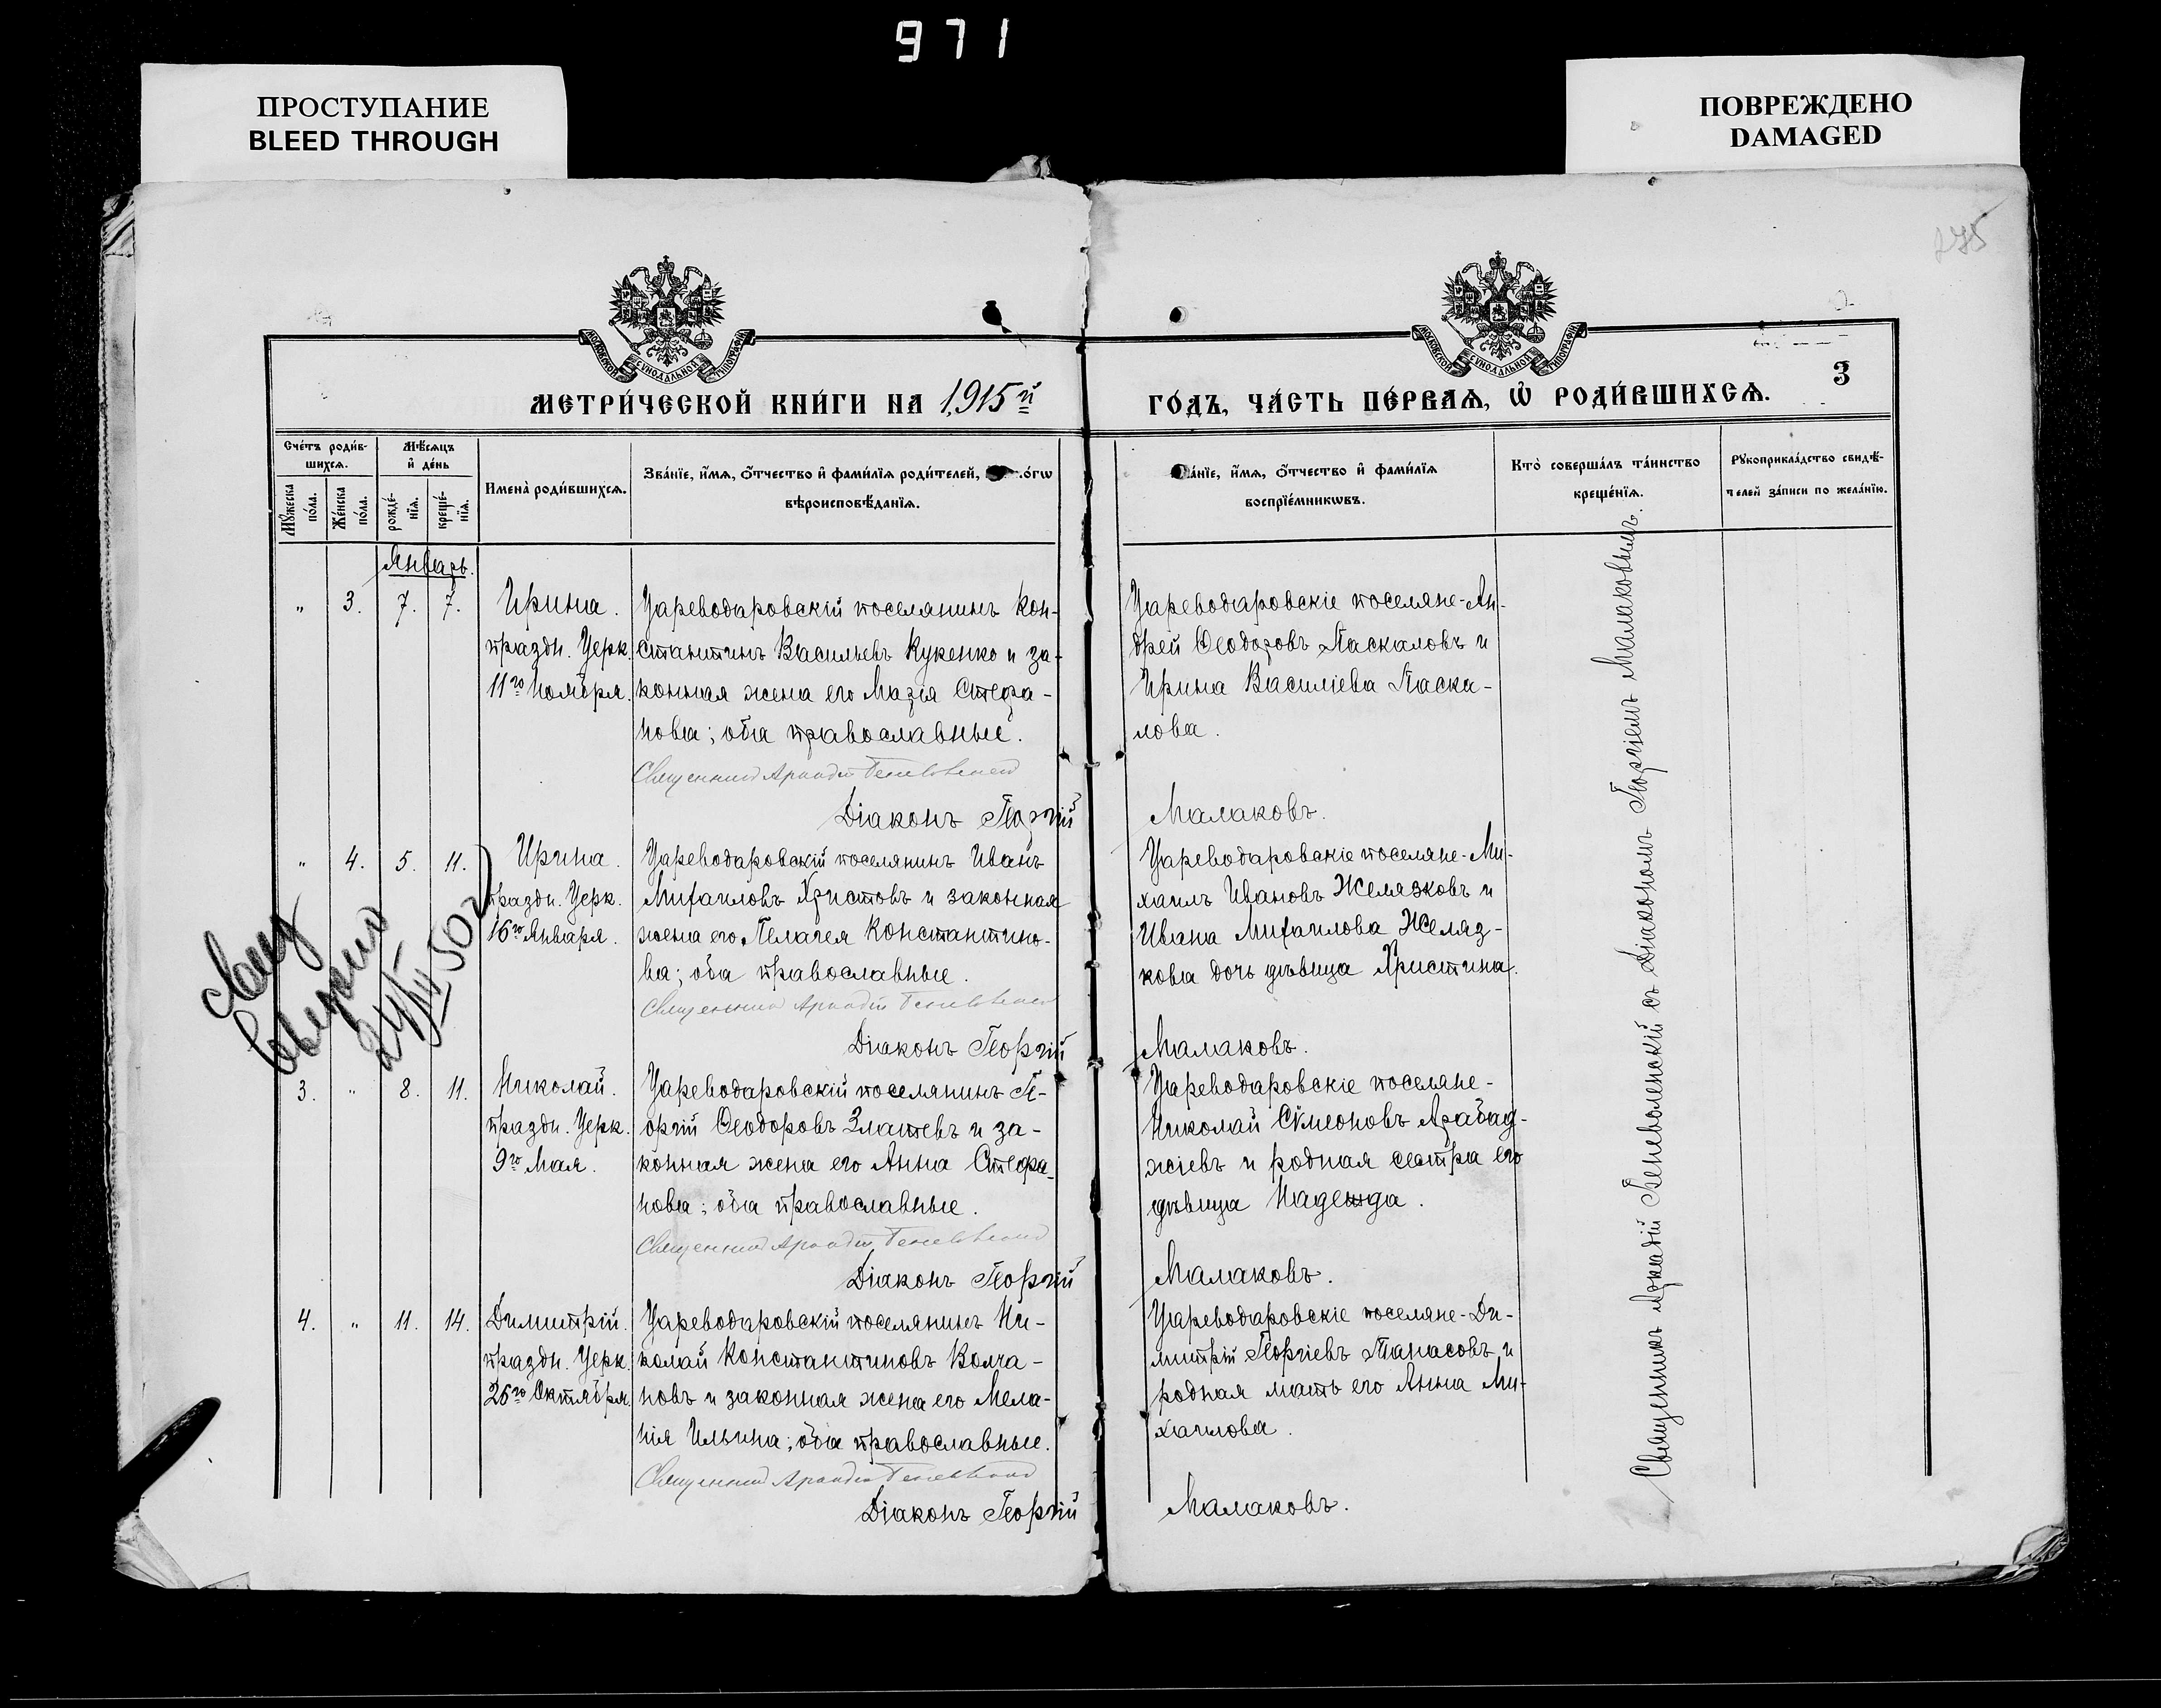 971
ПРОСТУПАНИЕ
BLEED THROUGH
ПОВРЕЖДЕНО
DAMAGED
275
МОСКОВСКОЙ СѴНОДАЛЬНОЙ ТИПОГРАФІИ
МОСКОВСКОЙ СѴНОДАЛЬНОЙ ТИПОГРАФІИ
МЕТРИ́ЧЕСКОЙ КНИ́ГИ НА 1915й
ГО́ДЪ, ЧА́СТЬ ПЕ́РВАѦ, Ѽ РОДИ́ВШИХСѦ. 3
Сче́тъ роди́в-
шихсѧ.
Мѣ́сѧцъ
и҆ де́нь
Мꙋ́жеска
по́ла.
Же́нска
по́ла.
рожде́-
нїѧ.
креще́-
нїѧ.
Имена̀ роди́вшихсѧ.
Зва́нїе, и҆́мѧ, ѻ҆́тчество и҆ фами́лїѧ роди́телей,
вѣроисповѣ́данїѧ.
и҆́мѧ, ѻ҆́тчество и҆ фами́лїѧ
воспрїе́мникѡвъ.
Кто̀ соверша́лъ та́инство
креще́нїѧ.
Рꙋкоприкла́дство свидѣ́-
телей за́писи по жела́нїю.
Январь.
„ 3. 7. 7.
Ирина.
праздн. Церк.
11го Ноября.
Цареводаровскій поселянинъ Кон-
стантинъ Васильевъ Кукенко и за-
конная жена его Марія Стефа-
нова; оба православные.
Священникъ Аркадій Беневоленскій
Діаконъ Георгій
Цареводаровскіе поселяне-Ан-
дрей Ѳеодоровъ Паскаловъ и
Ирина Василіева Паска-
лова.
Малаковъ.
„ 4. 5. 11.
Ирина.
праздн. Церк.
16го Января.
Цареводаровскій поселянинъ Иванъ
Михаиловъ Христовъ и законная
жена его Пелагея Константино-
ва; оба православные.
Священникъ Аркадій Беневоленскій
Діаконъ Георгій
Цареводаровскіе поселяне-Ми-
хаилъ Ивановъ Желязковъ и
Ивана Михаилова Желяз-
кова дочь дѣвица Христина.
Малаковъ.
3. „ 8. 11.
Николай.
праздн. Церк.
9го Мая.
Цареводаровскій поселянинъ Ге-
оргій Ѳеодоровъ Златевъ и за-
конная жена его Анна Стефа-
нова; оба православные.
Священникъ Аркадій Беневоленскій
Діаконъ Георгій
Цареводаровскіе поселяне-
Николай Сѵмеоновъ Арабад-
жіевъ и родная сестра его
дѣвица Надежда.
Малаковъ.
4. „ 11. 14.
Димитрій.
праздн. Церк.
26го Октября.
Цареводаровскій поселянинъ Ни-
колай Константиновъ Колча-
новъ и законная жена его Мела-
нія Ильина; оба православные.
Священникъ Аркадій Беневоленскій
Діаконъ Георгій
Цареводаровскіе поселяне-Ди-
митрій Георгіевъ Танасовъ и
родная мать его Анна Ми-
хаилова.
Малаковъ.
Священникъ Аркадій Беневоленскій съ Діакономъ Георгіемъ Малаковымъ.